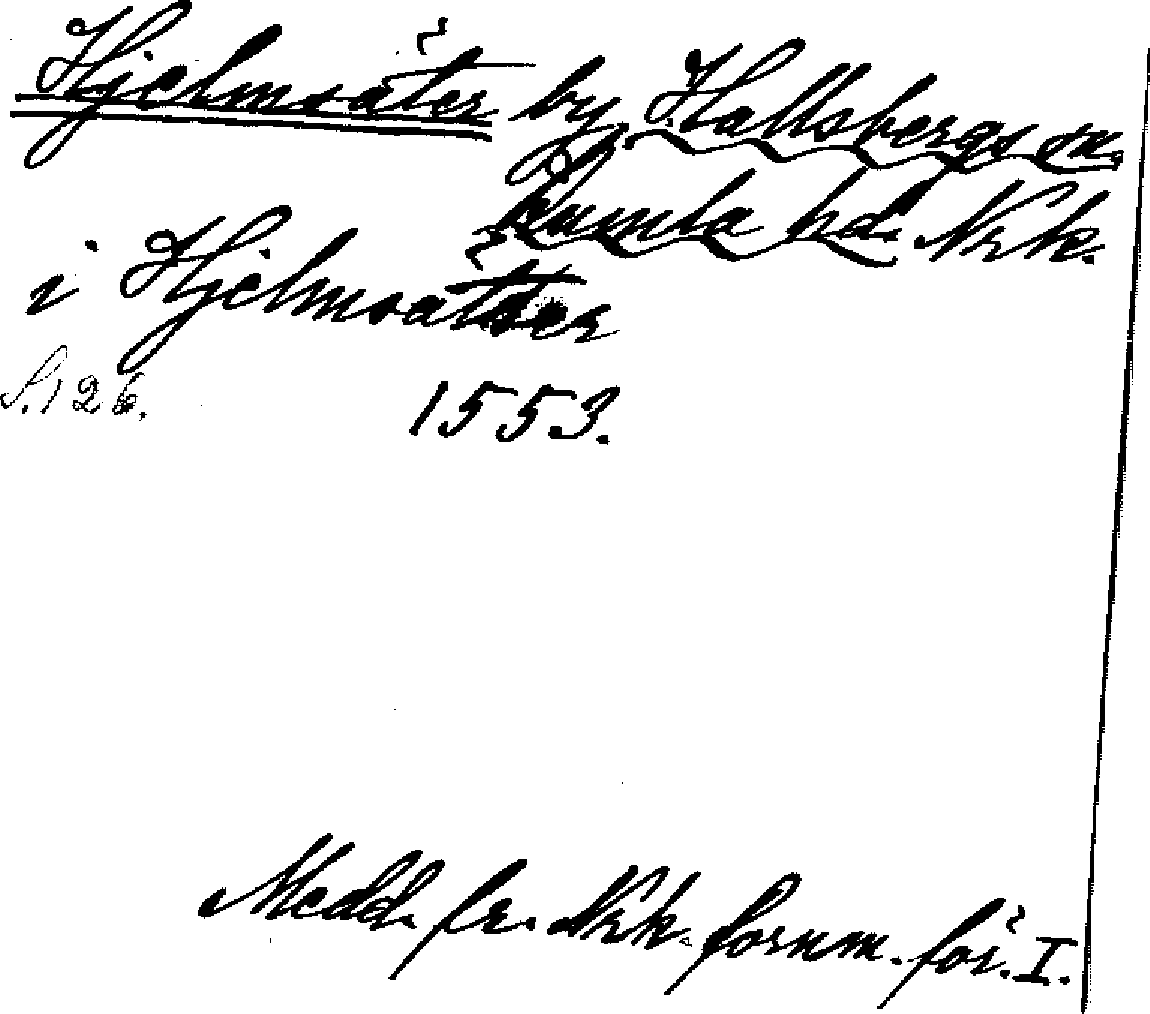 Hjelmsäter by, Hallsbergs sn.
Kumla hd. Nrk.
i Hjelmsätter
S. 126.
1553.
Medd. fr. Nrk. fornm. för. I.